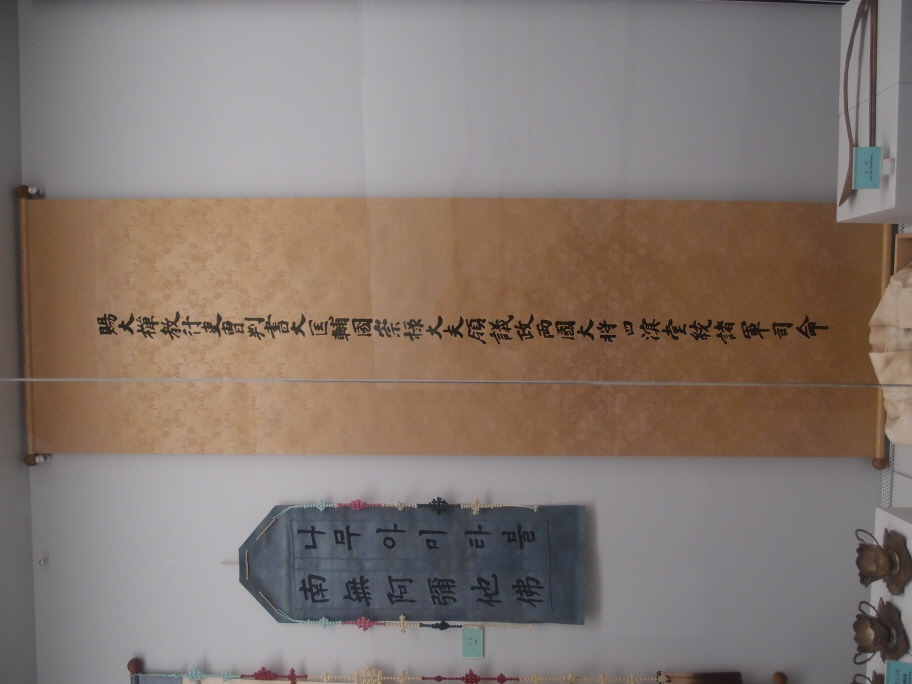 賜大禪教什吏曹判書大匡輔國崇祿大夫領議政兩國大將四溟堂統諸軍司命
나무아미타불
南無阿彌他佛